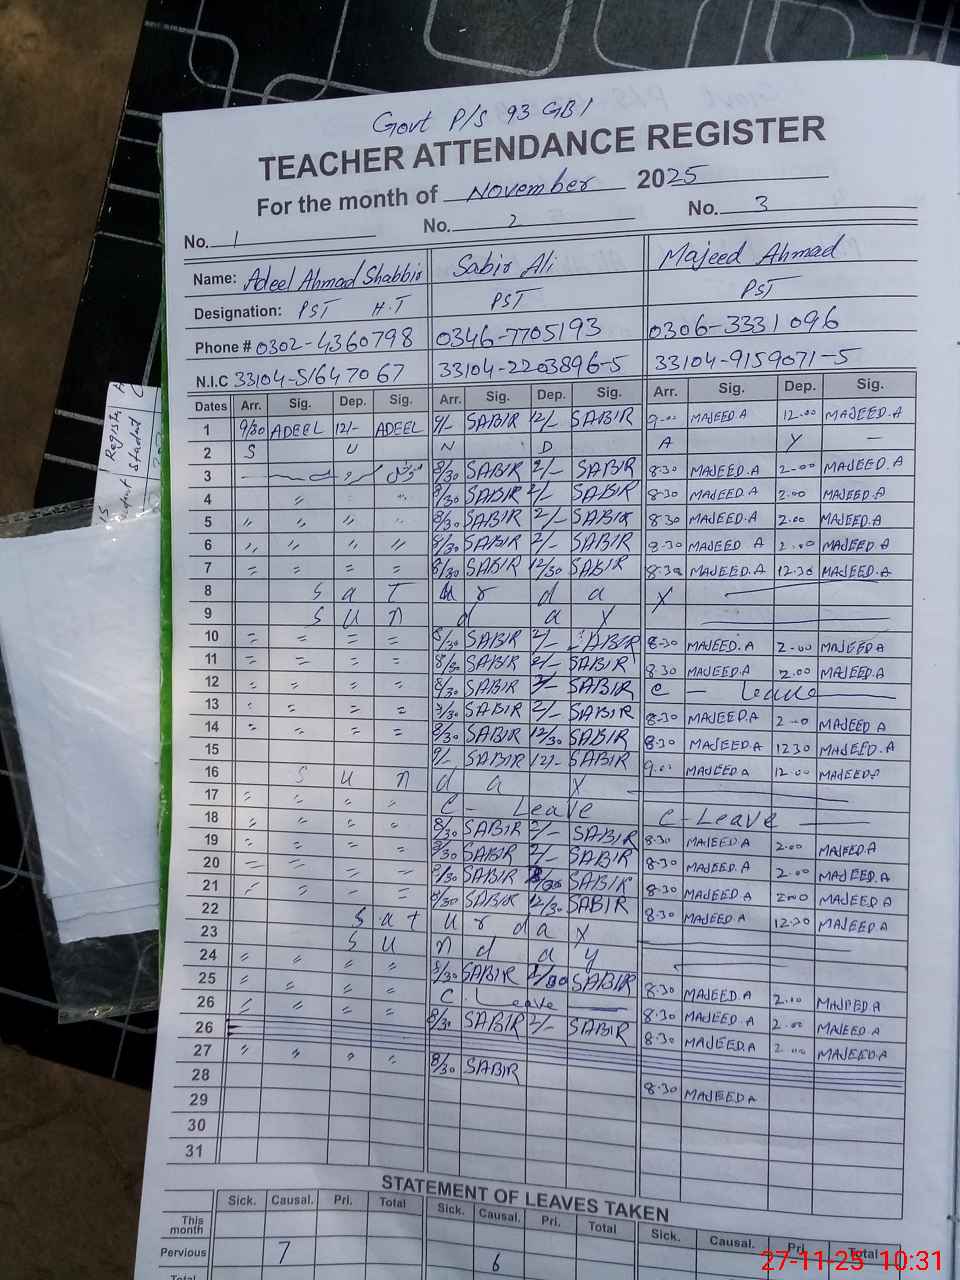 Govt P/S 93 GB1
TEACHER ATTENDANCE REGISTER
For the month of November 2025
No. 1 No. 2 No. 3
Name: Adeel Ahmad Shabbir Sabir Ali Majeed Ahmad
Designation: PST H.T PST PST
Phone # 0302-4360798 0346-7705193 0306-3331096
N.I.C 33104-5164706 7 33104-2203896-5 33104-9159071-5
Dates Arr. Sig. Dep. Sig. Arr. Sig. Dep. Sig. Arr. Sig. Dep. Sig.
1 9/30 ADEEL 12/- ADEEL 9/- SABIR 12/- SABIR 9-00 MAJEED A 12.00 MAJEED.A
2 S U N D A Y —
3 8/30 SABIR 2/- SABIR 8-30 MAJEED.A 2-00 MAJEED.A
4 " 8/30 SABIR 2/- SABIR 8-30 MAJEED.A 2.00 MAJEED.A
5 " " " " 8/30 SABIR 2/- SABIR 8-30 MAJEED.A 2.00 MAJEED.A
6 " " " " 8/30 SABIR 2/- SABIR 8-30 MAJEED A 2.00 MAJEED.A
7 = = = = 8/30 SABIR 12/30 SABIR 8-30 MAJEED.A 12.30 MAJEED.A
8 S a T u r d a y
9 S U n d a y
10 = = = = 8/30 SABIR 2/- SABIR 8-30 MAJEED.A 2-00 MAJEED A
11 = = = = 8/30 SABIR 2/- SABIR 8-30 MAJEED.A 2.00 MAJEED.A
12 = = = = 8/30 SABIR 2/- SABIR C - Leave
13 = = = = 8/30 SABIR 2/- SABIR 8-30 MAJEED.A 2-00 MAJEED A
14 = = = = 8/30 SABIR 12/30 SABIR 8-30 MAJEED.A 1230 MAJEED.A
15 9/- SABIR 12/- SABIR 9.00 MAJEED A 12.00 MAJEED
16 S U n d a y
17 " " " " C - Leave C-Leave
18 " " " " 8/30 SABIR 2/- SABIR 8-30 MAJEED.A 2.00 MAJEED.A
19 " " " " 8/30 SABIR 2/- SABIR 8-30 MAJEED.A 2.00 MAJEED.A
20 = = = = 8/30 SABIR SABIR 8-30 MAJEED.A 2.00 MAJEED.A
21 = = = = 8/30 SABIR 12/30 SABIR 8-30 MAJEED A 12.30 MAJEED.A
22 S a t u r d a y
23 S U n d a y
24 " " " " 8/30 SABIR SABIR 8-30 MAJEED.A 2.00 MAJEED.A
25 " " " " C. Leave 8-30 MAJEED.A 2.00 MAJEED.A
26 " " " " 8/30 SABIR 2/- SABIR 8-30 MAJEED.A 2.00 MAJEED.A
26
27 " " " " 8/30 SABIR 8-30 MAJEED A
28
29
30
31
STATEMENT OF LEAVES TAKEN
Sick. Causal. Pri. Total Sick. Causal. Pri. Total Sick. Causal. Pri. Total
This month
Pervious 7 6
Total
27-11-25 10:31